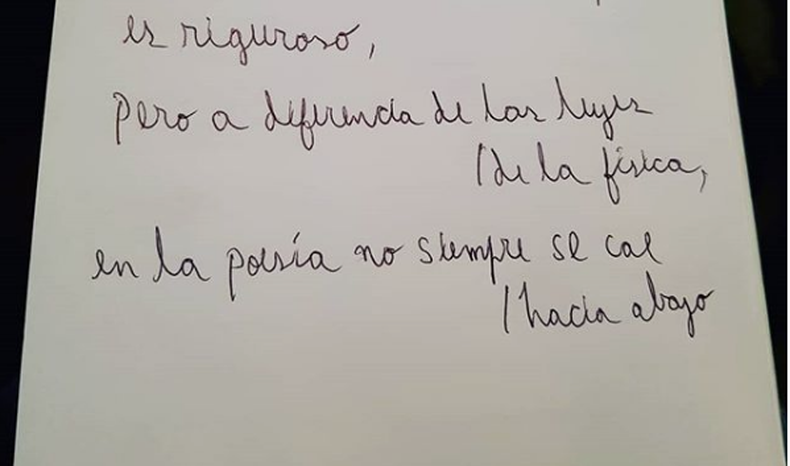 es riguroso,
pero a diferencia de las leyes
/de la física,
en la poesía no siempre se cae
/hacia abajo